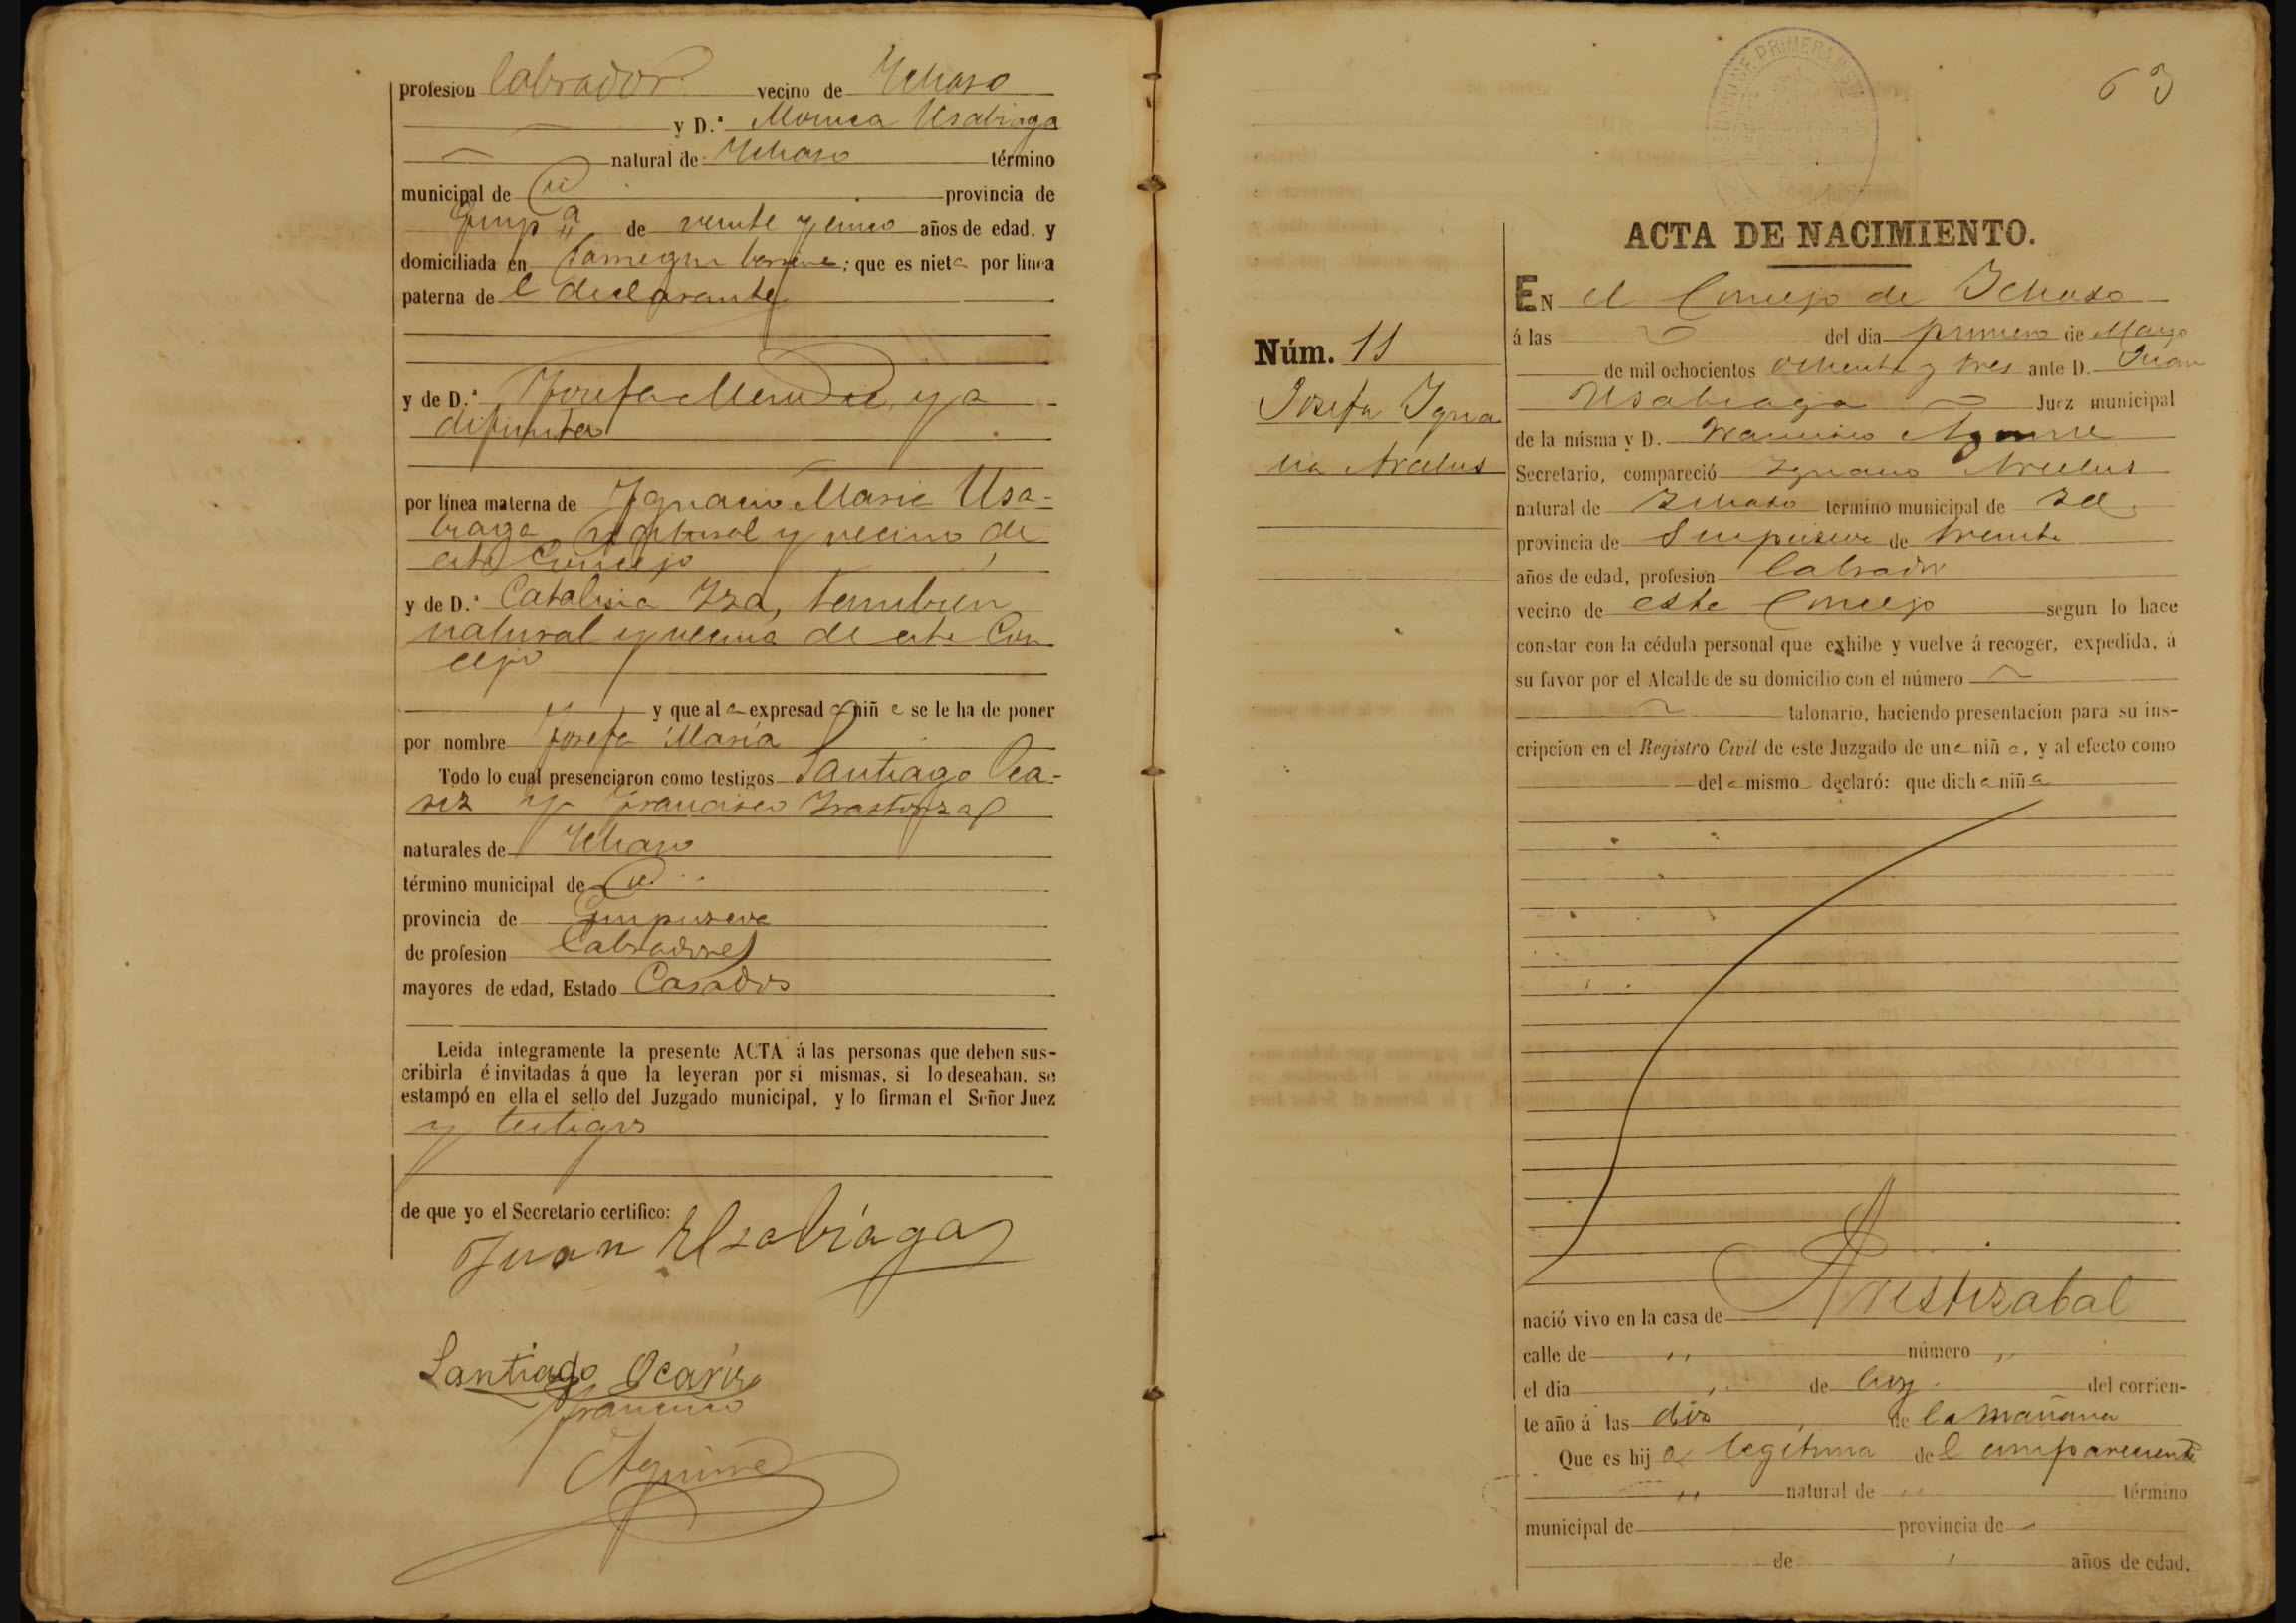 profesion labrador vecino de Ychaso
y D.ª Monica Usabiaga
natural de Ychaso término
municipal de id provincia de
Guip.ª de veinte y cinco años de edad, y
domiciliada en ; que es nieta por linea
paterna de l declarante
y de D.ª Josefa Mendia, ya
difunta
por línea materna de Ygnacio Maria Usa-
biaga natural y vecino de
este Concejo
y de D.ª Catalina Yza, tambien
natural y vecina de este Con
cejo
y que al a expresad a niñ a se le ha de poner
por nombre Josefa María
Todo lo cual presenciaron como testigos Santiago Oca-
riz y Francisco Yrastorza
naturales de Ychaso
término municipal de id
provincia de Guipuzcoa
de profesion Labradores
mayores de edad, Estado Casados
Leida integramente la presente ACTA á las personas que deben sus-
cribirla é invitadas á que la leyeran por si mismas, si lo deseaban, se
estampó en ella el sello del Juzgado municipal, y lo firman el Señor Juez
y testigos
de que yo el Secretario certifico:
Juan Usabiaga
Santiago Ocariz
Francisco
Aguirre
63
ACTA DE NACIMIENTO.
Núm. 11
Josefa Ygna
cia Arcelus
EN el Concejo de Ychaso
á las del dia primero de Mayo
de mil ochocientos ochenta y tres ante D. Juan
Usabiaga Juez municipal
de la misma y D. Francisco Aguirre
Secretario, compareció Ygnacio Arcelus
natural de Ychaso termino municipal de Id.
provincia de Guipuzcoa de treinta
años de edad, profesion labrador
vecino de este Concejo segun lo hace
constar con la cédula personal que exhibe y vuelve á recoger, expedida, á
su favor por el Alcalde de su domicilio con el número
talonario, haciendo presentacion para su ins-
cripcion en el Registro Civil de este Juzgado de una niña, y al efecto como
del a mismo declaró: que dicha niña
nació vivo en la casa de Aristizabal
calle de ,, número ,,
el dia ,, de hoy del corrien-
te año á las diez de la mañana
Que es hij a legítima de l compareciente
,, natural de ,, término
municipal de provincia de
de años de edad.